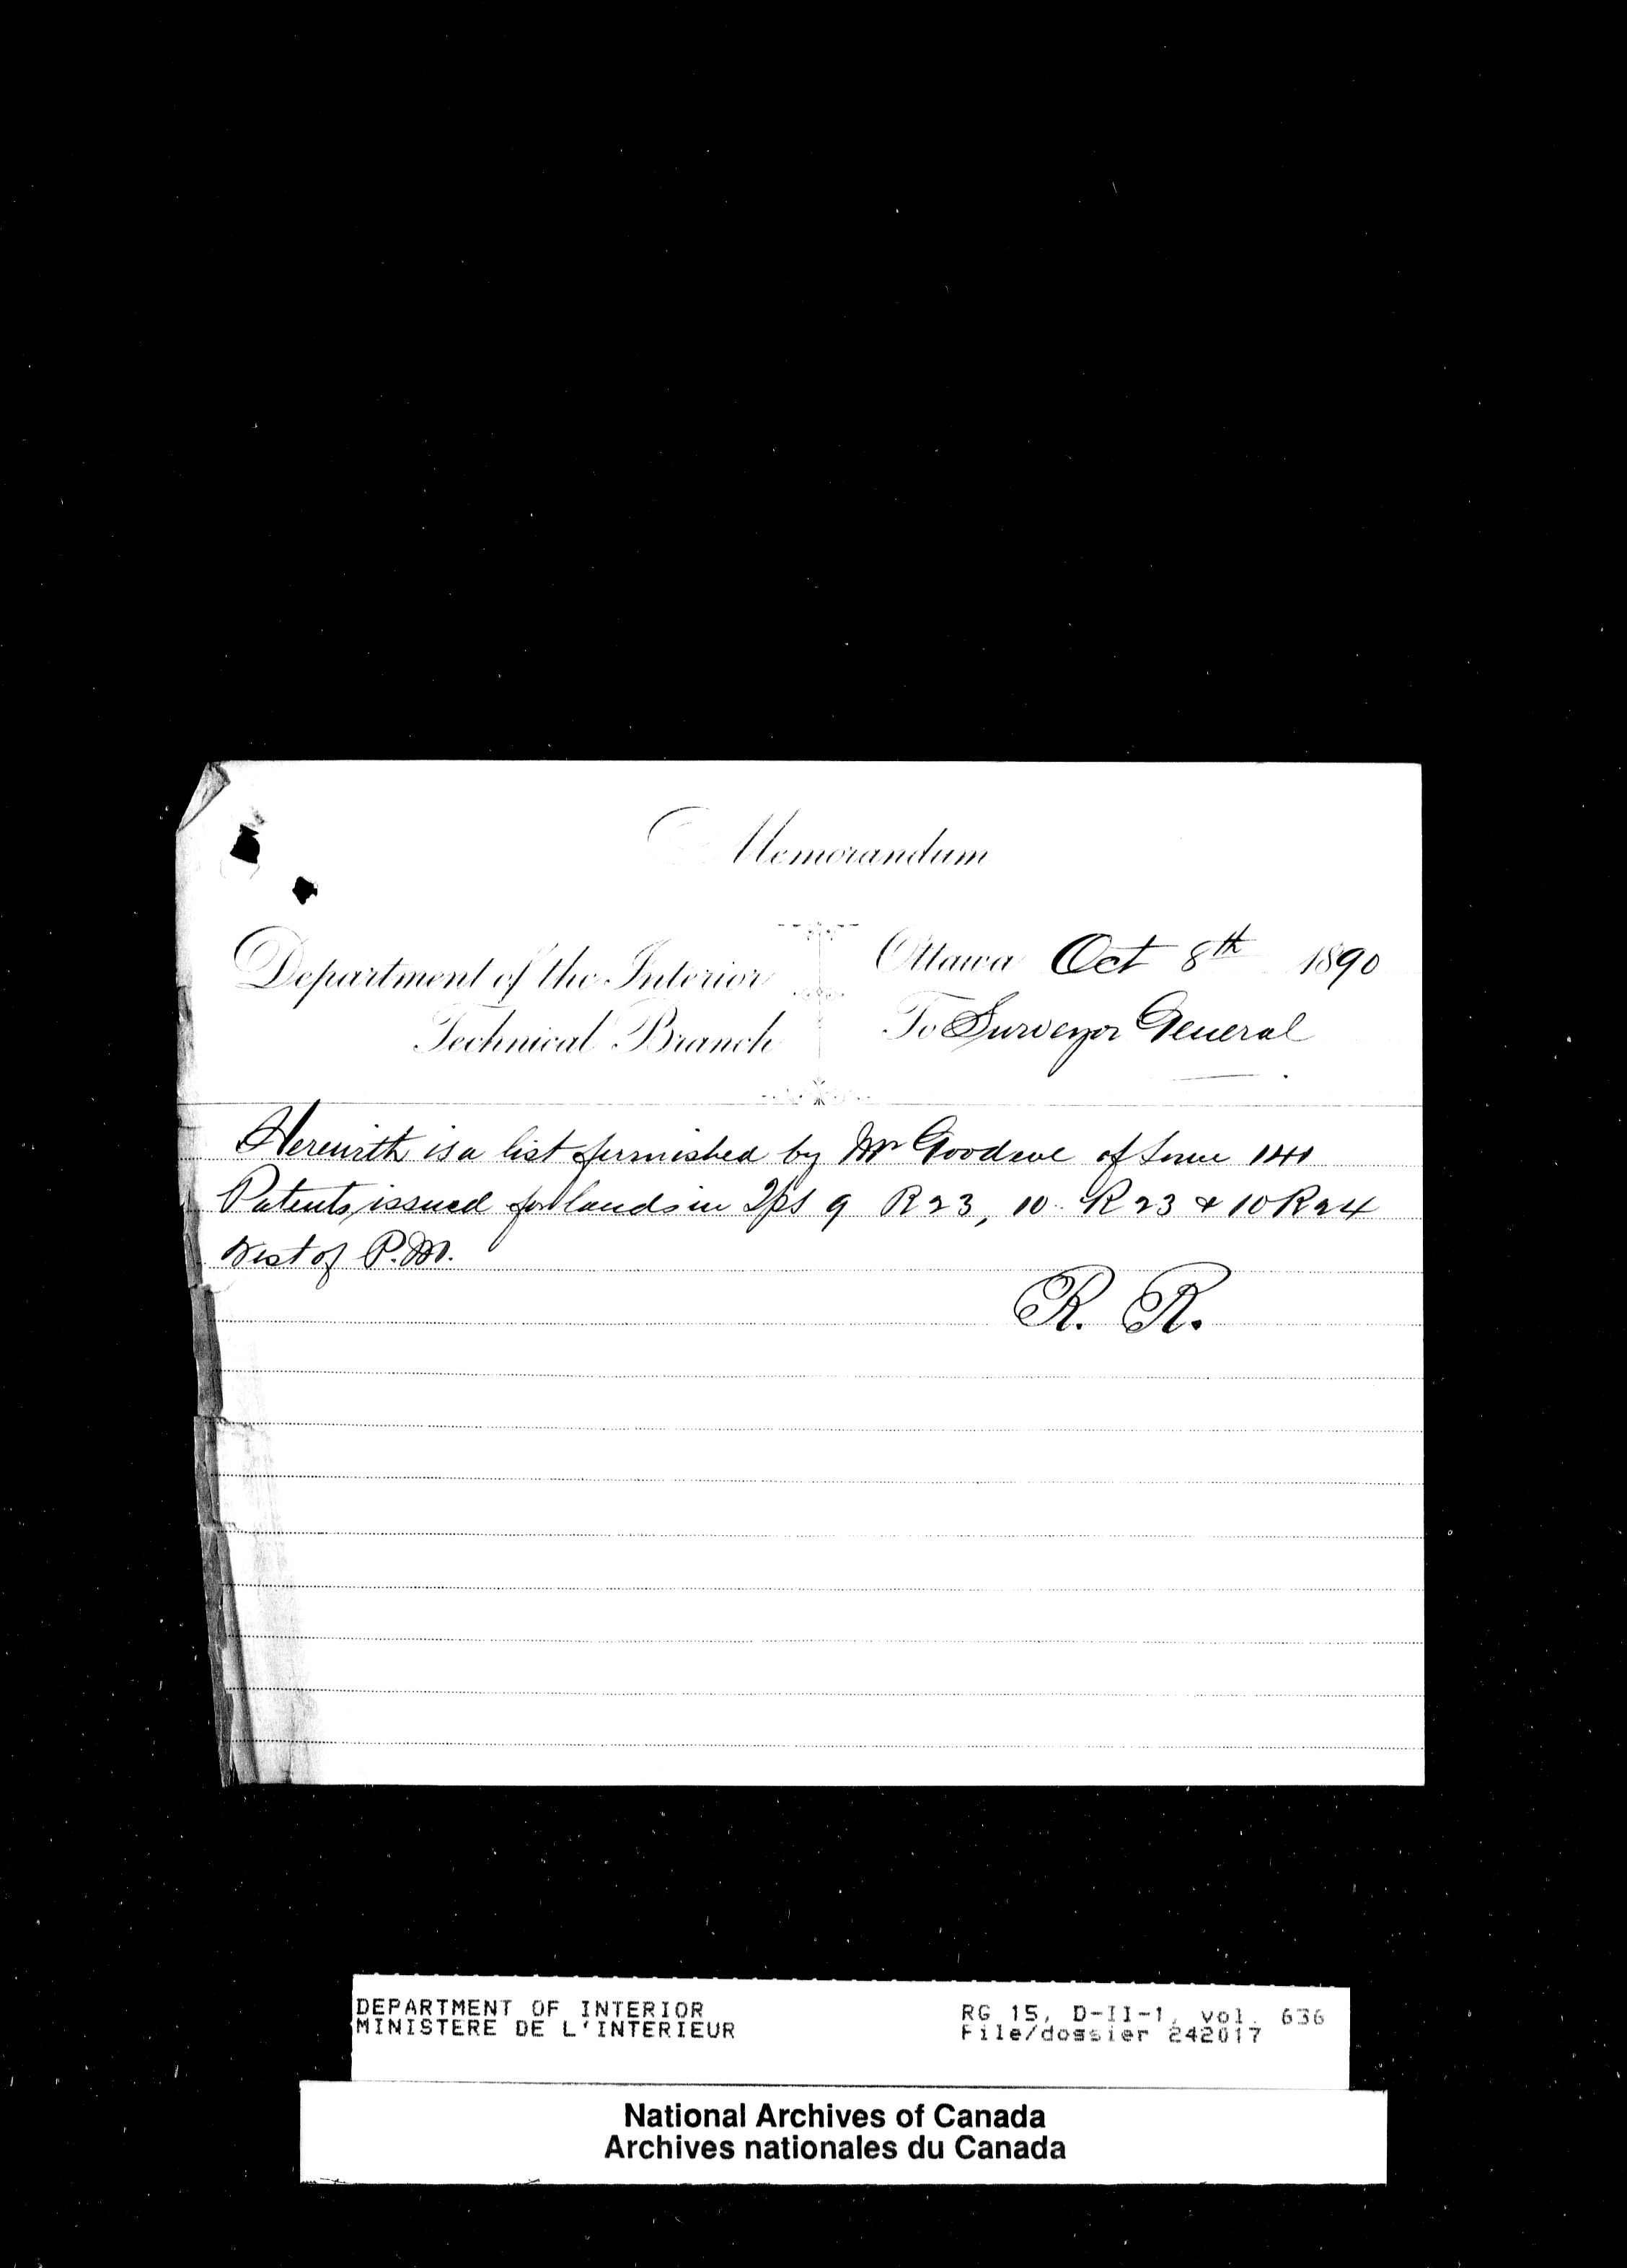 Memorandum
Department of the Interior
Technical Branch
Ottawa Oct 8th 1890
To Surveyor General
Herewith is a list furnished by Mr Goodeve of some 141
Patents issued for lands in Tps 9 R 23, 10 R 23 & 10 R 24
West of P.M.
R. R.
DEPARTMENT OF INTERIOR
MINISTERE DE L'INTERIEUR
RG 15, D-II-1, vol. 636
File/dossier 242017
National Archives of Canada
Archives nationales du Canada